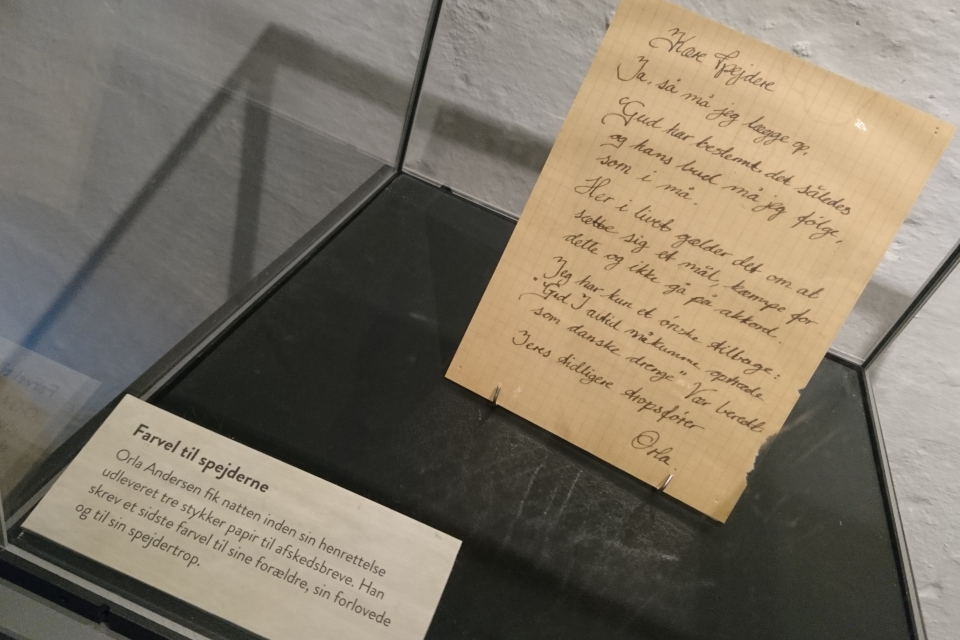 Kære Spejdere
Ja, så må jeg lægge op.
Gud har bestemt det således
og hans bud må jeg følge,
som i må.
Her i livet gælder det om at
sætte sig et mål, kæmpe for
dette og ikke gå på akkord.
Jeg har kun et ønske tilbage:
"Gud I altid måkumme optræde
som danske drenge" Vær beredt.
Jeres tidligere tropsfører
Orla.
Farvel til spejderne
Orla Andersen fik natten inden sin henrettelse
udleveret tre stykker papir til afskedsbreve. Han
skrev et sidste farvel til sine forældre, sin forlovede
og til sin spejdertrop.